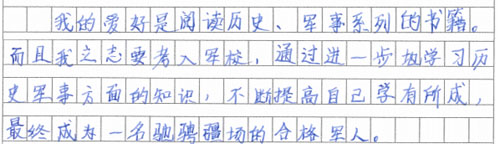 我的爱好是阅读历史、军事系列的书籍。
而且我立志要考入军校，通过进一步地学习历
史军事方面的知识，不断提高自己学有所成，
最终成为一名驰骋疆场的合格军人。